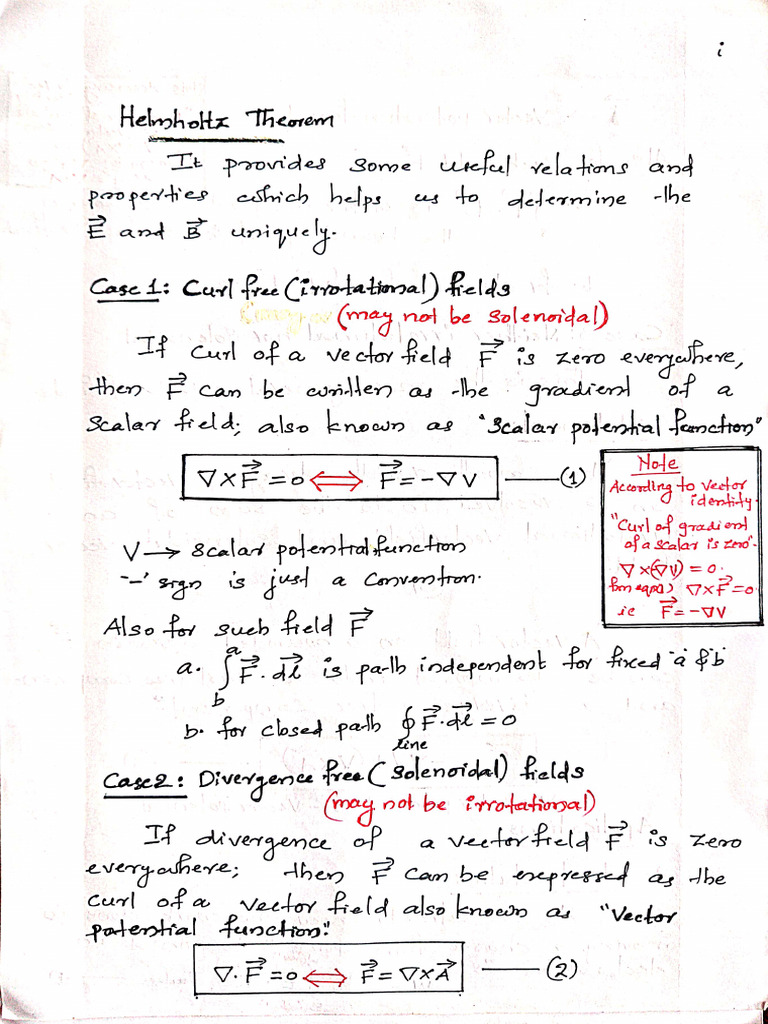 i
Helmholtz Theorem
It provides some useful relations and
properties which helps us to determine the
E⃗ and B⃗ uniquely.
Case 1: Curl free (irrotational) fields
(may not be solenoidal)
If Curl of a vector field F⃗ is zero everywhere,
then F⃗ can be written as the gradient of a
scalar field; also known as "scalar potential function"
∇×F⃗ = 0 ⟺ F⃗ = -∇V ——— (1)
Note
According to vector
identity.
"Curl of gradient
of a scalar is zero".
∇×(-∇V) = 0.
from eqn(1) ∇×F⃗ = 0
ie F⃗ = -∇V
V → scalar potential function
'-' sign is just a convention.
Also for such field F⃗
a. ∫ᵇᵃ F⃗.dl⃗ is path independent for fixed 'a' & 'b'
b. for closed path ∮ F⃗.dl⃗ = 0
line
Case 2: Divergence free (solenoidal) fields
(may not be irrotational)
If divergence of a vector field F⃗ is zero
everywhere; then F⃗ can be expressed as the
curl of a vector field also known as "Vector
potential function."
∇.F⃗ = 0 ⟺ F⃗ = ∇×A⃗ ——— (2)